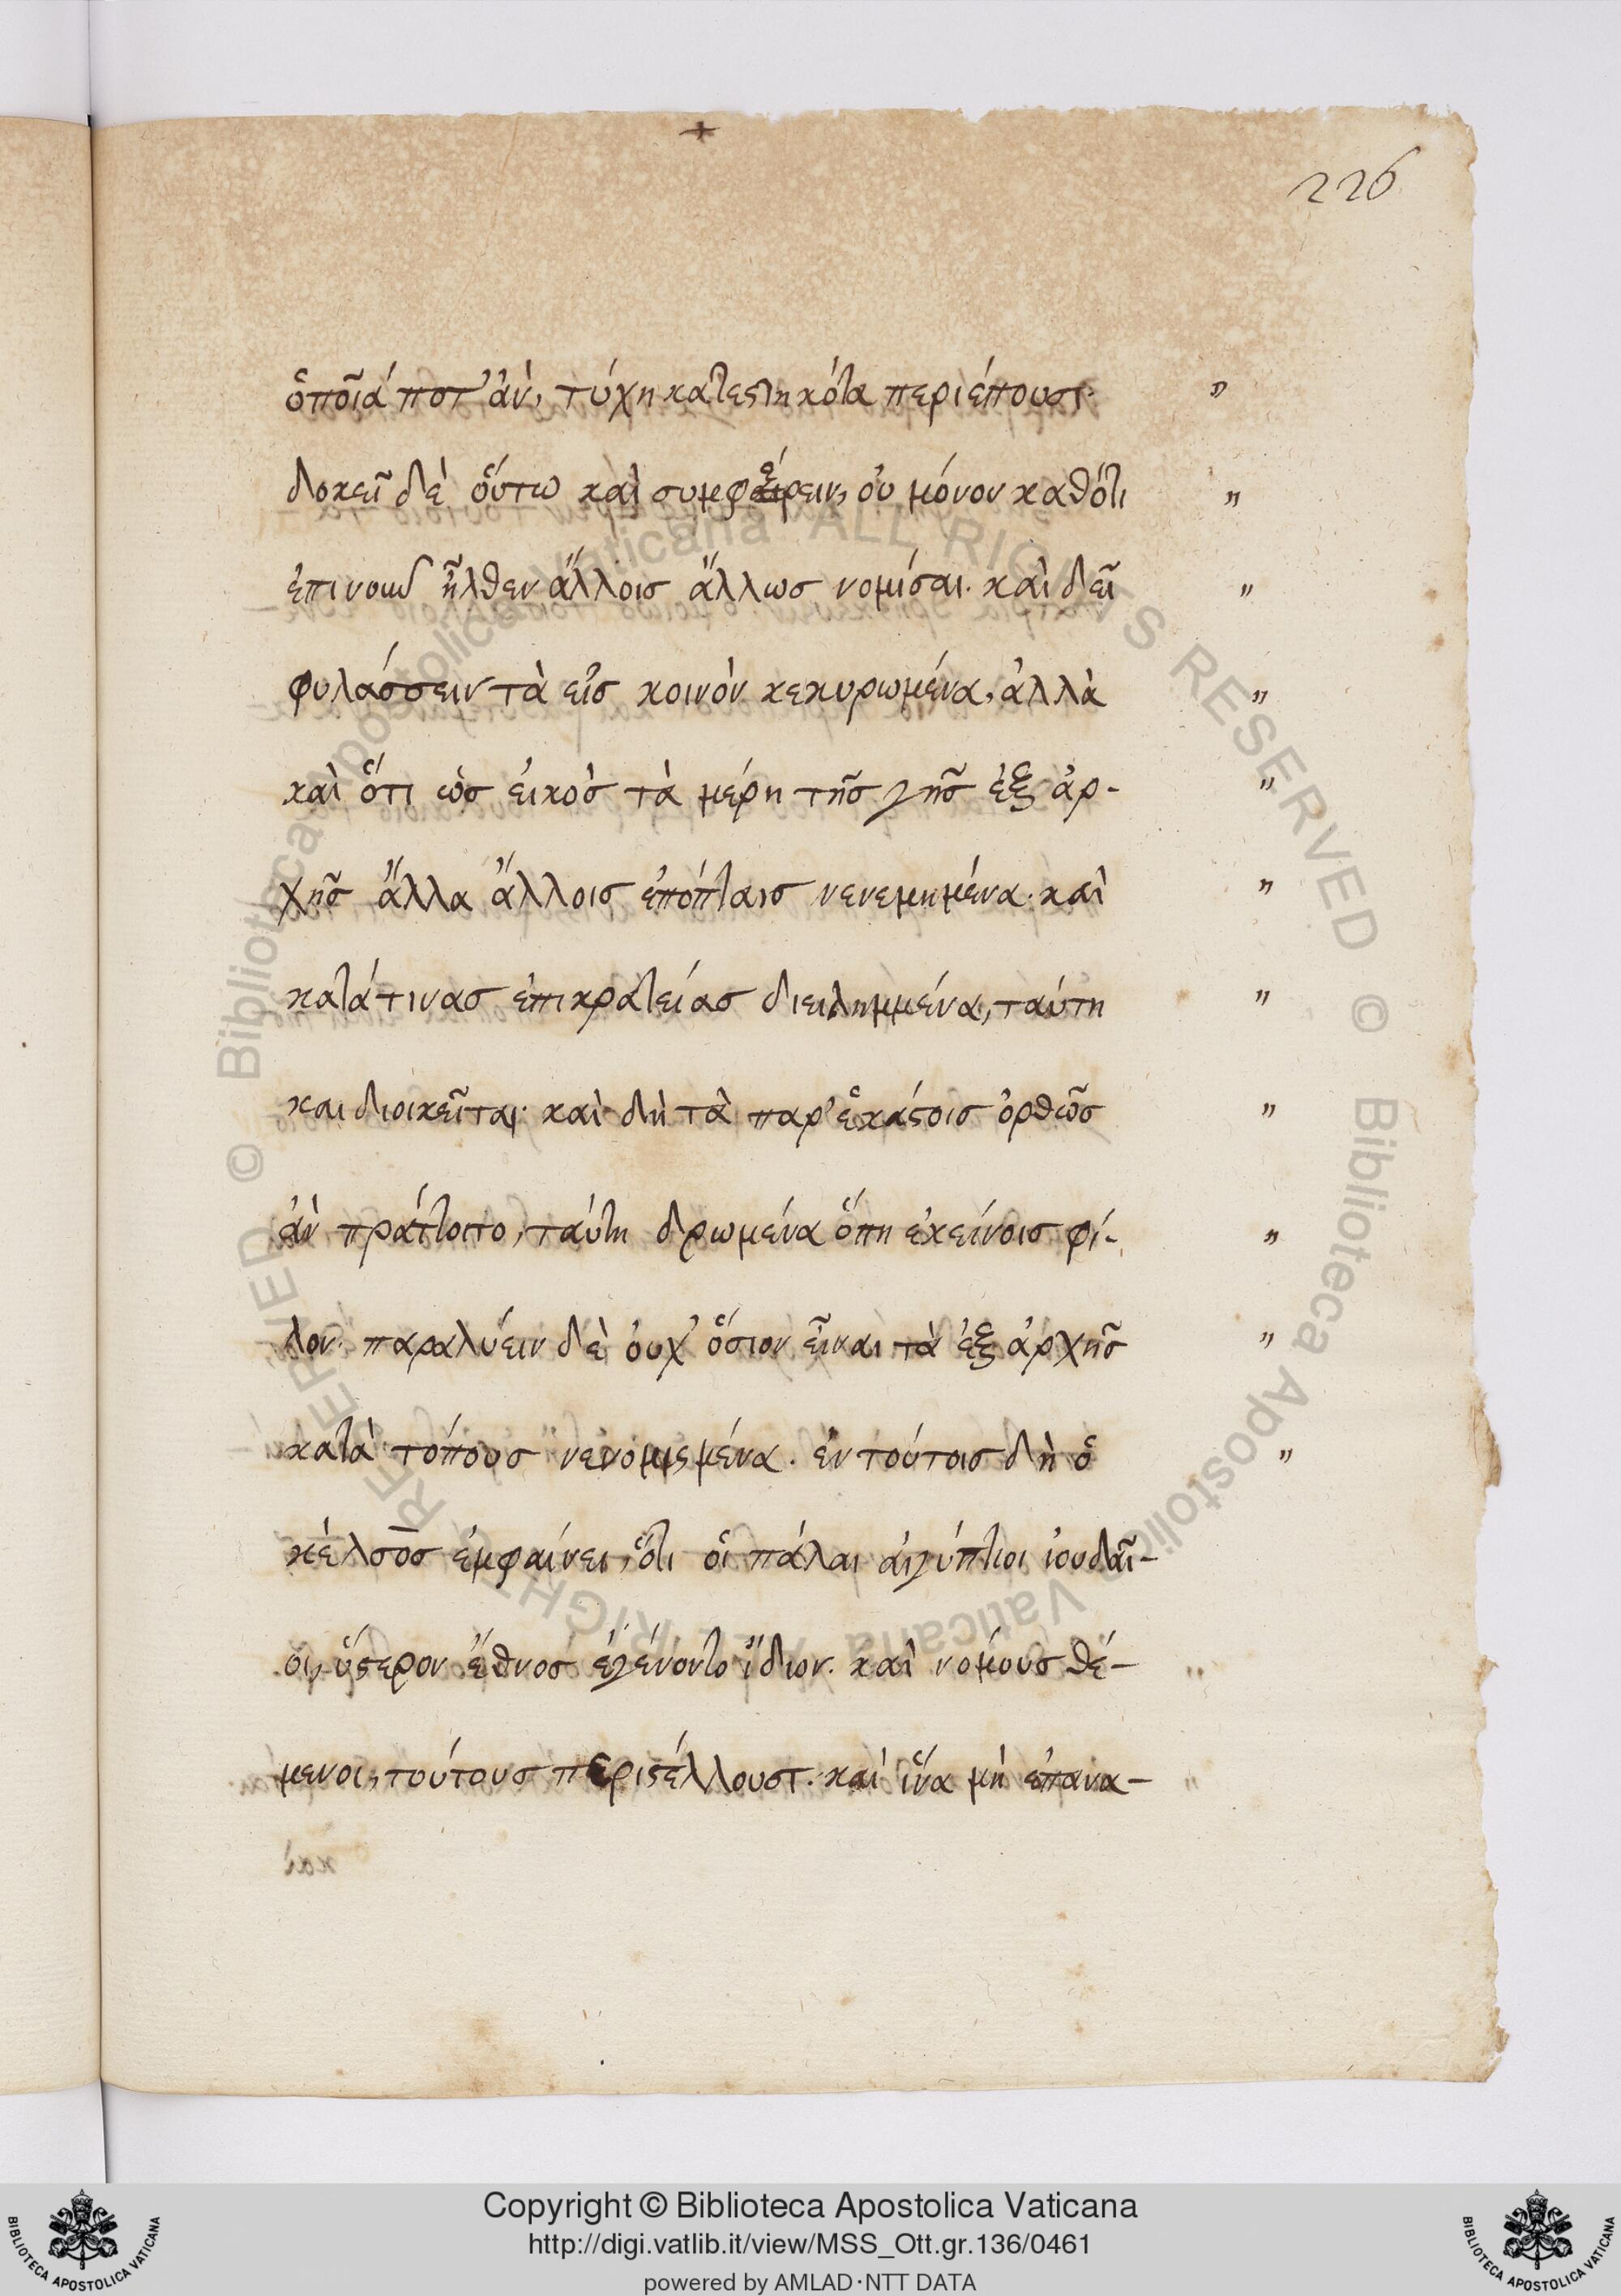 +
226
ὁποῖά ποτ' ἀν, τύχη κατεστηκότα περιέπουσι· "
δοκεῖ δὲ οὕτω καὶ συμφέρειν, οὐ μόνον καθότι "
ἐπὶ νοῦν ἦλθεν ἄλλοις ἄλλως νομίσαι. καὶ δεῖ "
φυλάσσειν τὰ εἰς κοινὸν κεκυρωμένα, ἀλλὰ "
καὶ ὅτι ὡς εἰκὸς τὰ μέρη τῆς γῆς ἐξ ἀρ- "
χῆς ἄλλα ἄλλοις ἐπόπταις νενεμημένα· καὶ "
κατάτινας ἐπικρατείας διειλημμένα, ταύτη "
και διοικεῖται· καὶ δὴ τὰ παρ' ἑκάστοις ὀρθῶς "
ἀν πράττοιτο, ταύτη δρωμένα ὅπη ἐκείνοις φί- "
λον· παραλύειν δὲ οὐχ' ὅσιον εἶναι τὰ ἐξ ἀρχῆς "
κατὰ τόπους νενομισμένα. ἐν τούτοις δὴ ὁ "
κέλσος ἐμφαίνει, ὅτι οἱ πάλαι αἰγύπτιοι ἰουδαῖ-
οι, ὕστερον ἔθνος ἐγένοντο ἴδιον. καὶ νόμους θέ- "
μενοι, τούτους περιστέλλουσι. καὶ ἵνα μὴ ἐπανα- "
Copyright © Biblioteca Apostolica Vaticana
http://digi.vatlib.it/view/MSS_Ott.gr.136/0461
powered by AMLAD·NTT DATA
BIBLIOTECA APOSTOLICA VATICANA
BIBLIOTECA APOSTOLICA VATICANA
© Biblioteca Apostolica Vaticana ALL RIGHTS RESERVED © Biblioteca Apostolica Vaticana ALL RIGHTS RESERVED